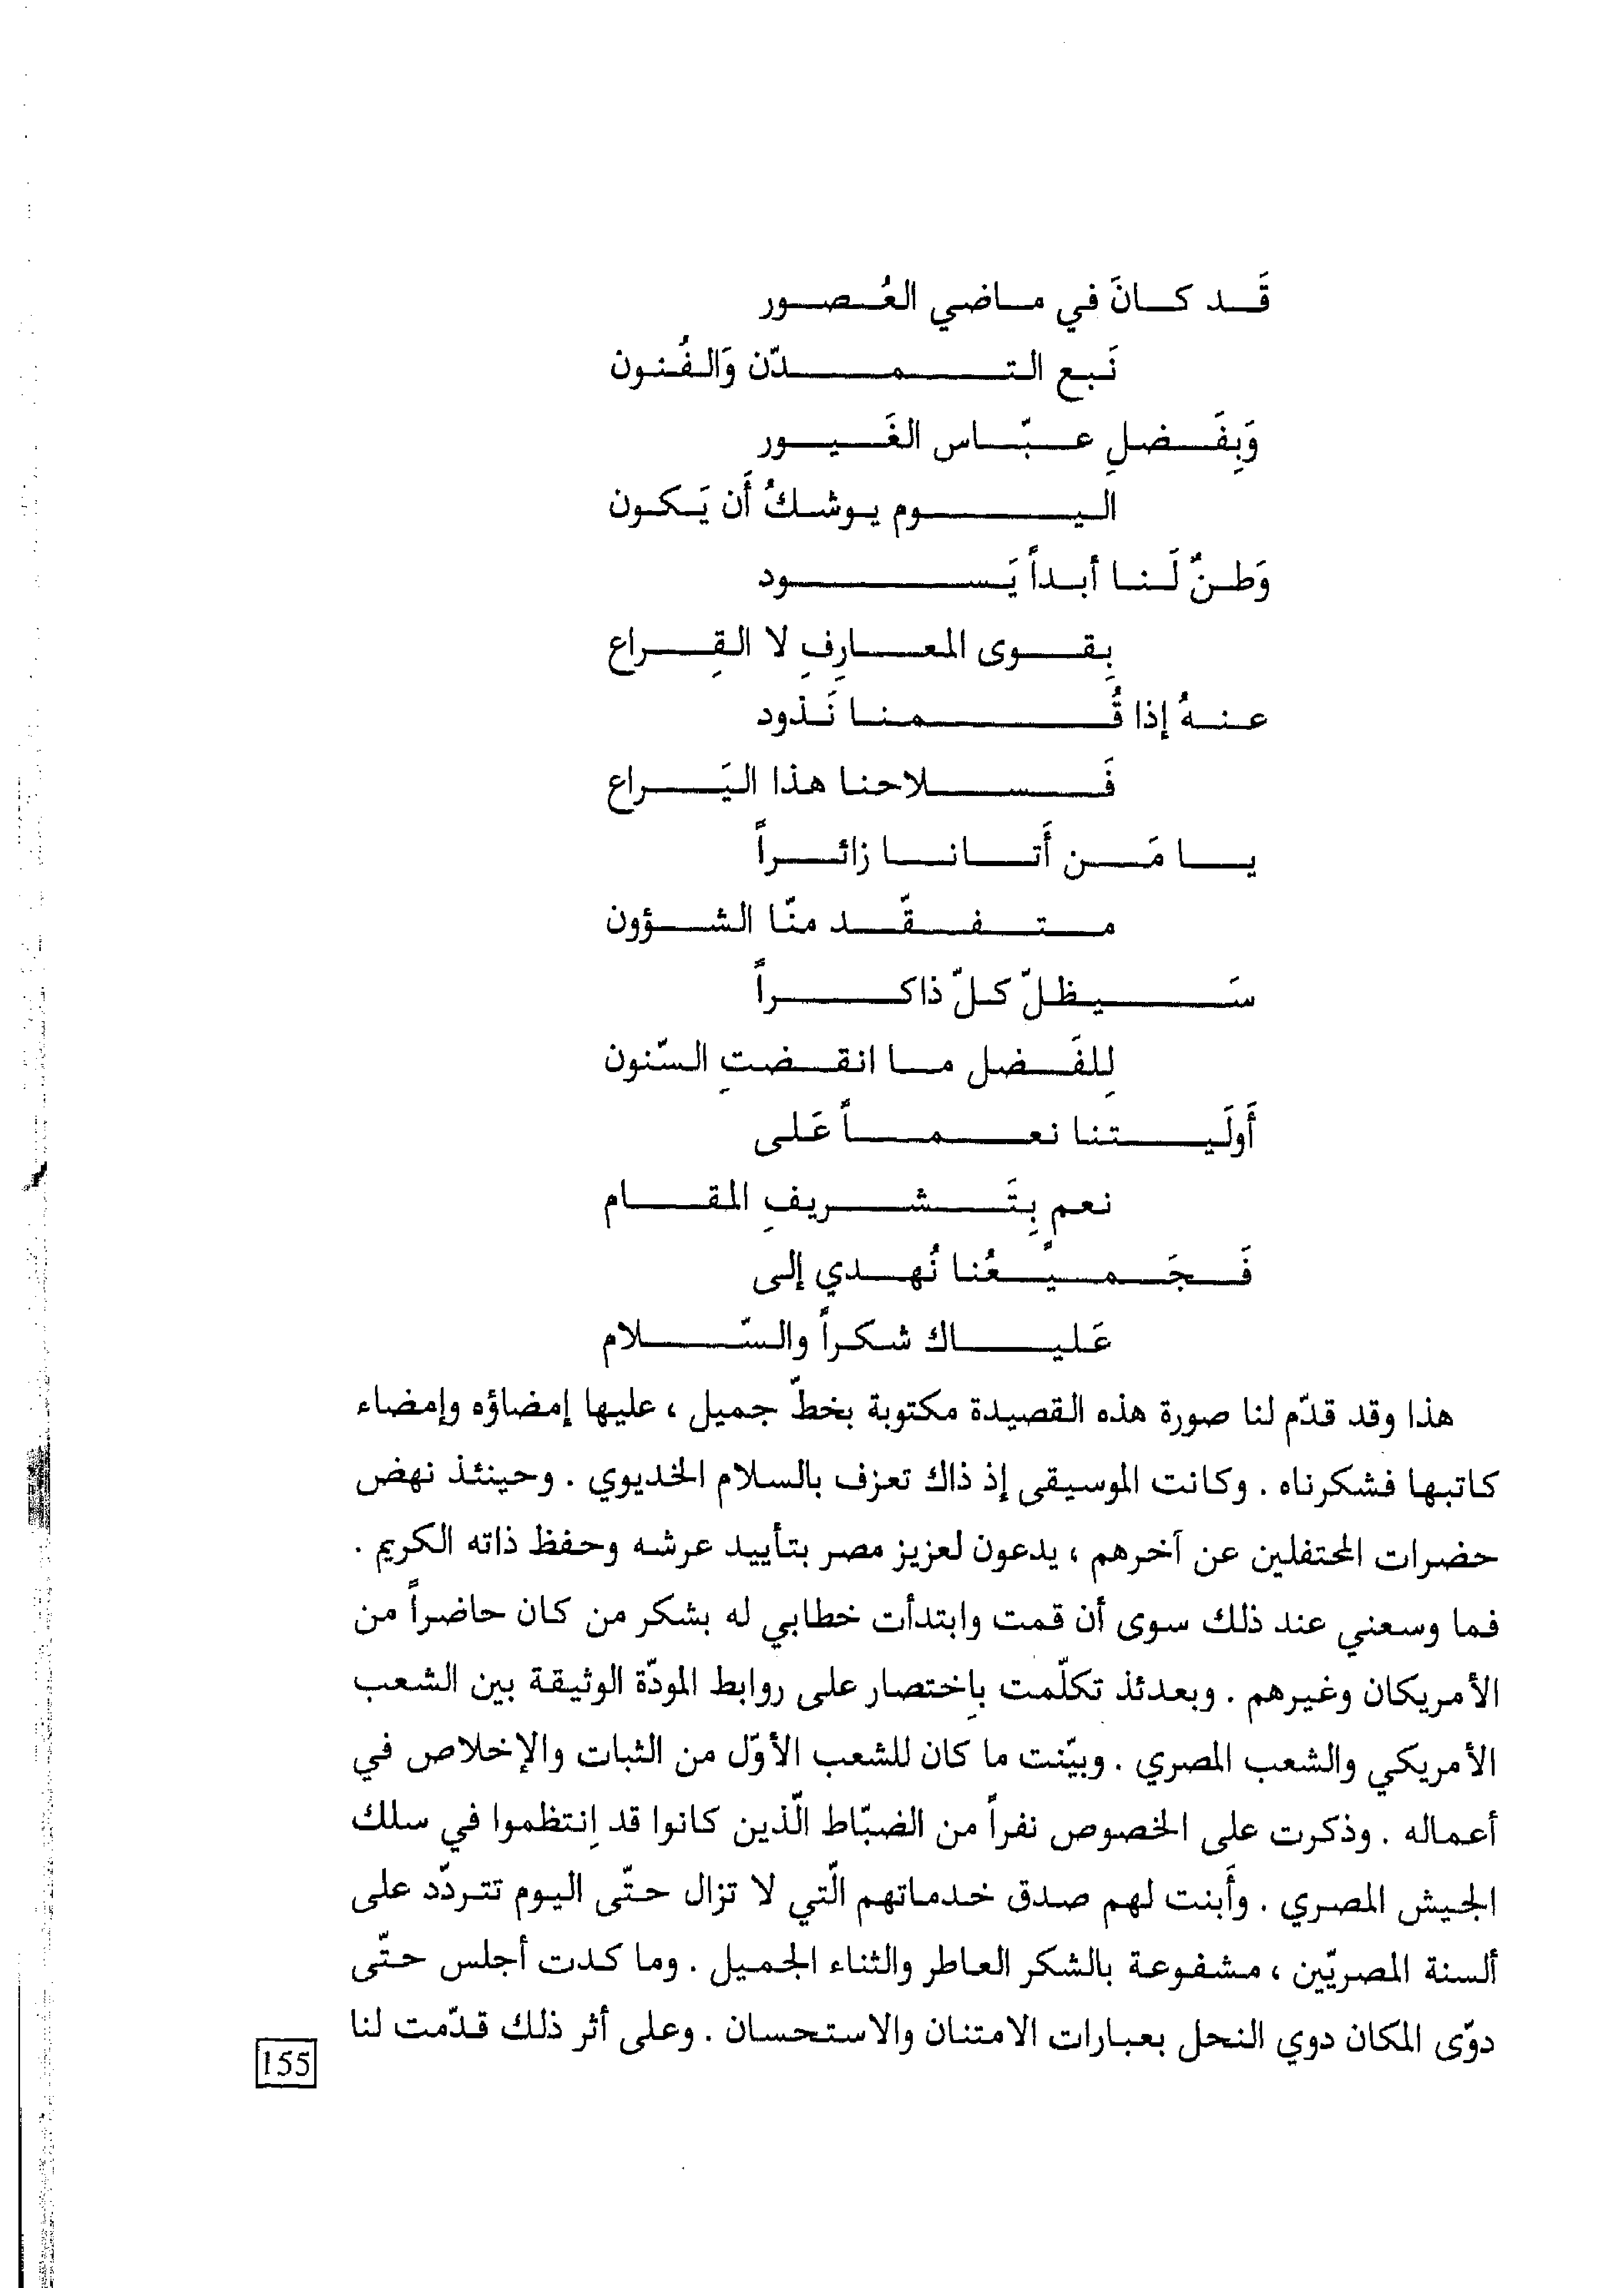 قَد كانَ في ماضي العُصور
نَبع التمدّن وَالفُنون
وَبِفَضلِ عبّاس الغَيور
اليوم يوشكُ أَن يَكون
وَطنٌ لَنا أبداً يَسود
بِقوى المعارِفِ لا القِراع
عنهُ إذا قُمنا نَذود
فَسلاحنا هذا اليَراع
يا مَن أَتانا زائراً
متفقّد منّا الشؤون
سَيظلّ كلّ ذاكراً
لِلفَضل ما انقضتِ السّنون
أَولَيتنا نعماً عَلى
نعم بِتَشريفِ المقام
فَجَميعُنا نُهدي إلى
عَلياك شكراً والسّلام
هذا وقد قدّم لنا صورة هذه القصيدة مكتوبة بخطّ جميل ، عليها إمضاؤه وإمضاء
كاتبها فشكرناه . وكانت الموسيقى إذ ذاك تعزف بالسلام الخديوي . وحينئذ نهض
حضرات المحتفلين عن آخرهم ، يدعون لعزيز مصر بتأييد عرشه وحفظ ذاته الكريم .
فما وسعني عند ذلك سوى أن قمت وابتدأت خطابي له بشكر من كان حاضراً من
الأمريكان وغيرهم . وبعدئذ تكلّمت بإختصار على روابط المودّة الوثيقة بين الشعب
الأمريكي والشعب المصري . وبيّنت ما كان للشعب الأوّل من الثبات والإخلاص في
أعماله . وذكرت على الخصوص نفراً من الضبّاط الّذين كانوا قد إنتظموا في سلك
الجيش المصري . وأَبنت لهم صدق خدماتهم الّتي لا تزال حتّى اليوم تتردّد على
ألسنة المصريّين ، مشفوعة بالشكر العاطر والثناء الجميل . وما كدت أجلس حتّى
دوّى المكان دوي النحل بعبارات الامتنان والاستحسان . وعلى أثر ذلك قدّمت لنا
155